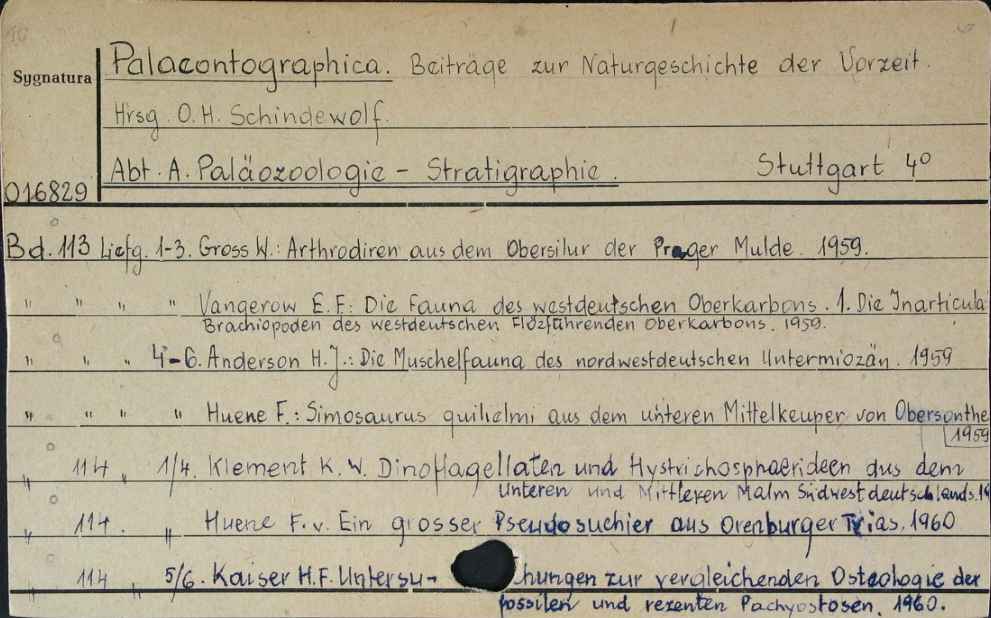 Palaeontographica. Beiträge zur Naturgeschichte der Vorzeit.
Sygnatura
Hrsg. O.H. Schindewolf.
Abt. A. Paläozoologie - Stratigraphie. Stuttgart 4°
016829
Bd. 113 Liefg. 1-3. Gross W.: Arthrodiren aus dem Obersilur der Prager Mulde. 1959.
" " " " Vangerow E.F: Die Fauna des westdeutschen Oberkarbons. 1. Die Inarticula
Brachiopoden des westdeutschen Flözführenden Oberkarbons. 1959.
" " " 4-6. Anderson H.J.: Die Muschelfauna des nordwestdeutschen Untermiozän. 1959
" " " " Huene F.: Simosaurus guilielmi aus dem unteren Mittelkeuper von Obersonthe
1959
" 114 " 1/4. Klement K.W. Dinoflagellaten und Hystrichosphaerideen aus dem
Unteren und Mittleren Malm Südwestdeutschlands. 19
" 114. " Huene F.v. Ein grosser Pseudosuchier aus Orenburger Trias. 1960
" 114 " 5/6. Kaiser H.F. Untersu- chungen zur vergleichenden Osteologie der
fossilen und rezenten Pachyostosen. 1960.